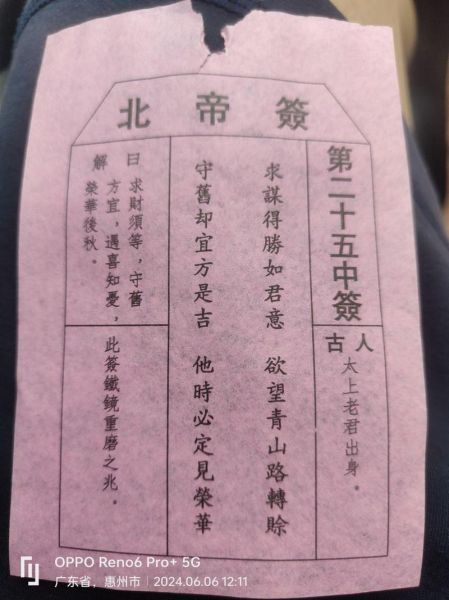 北帝簽
第二十五中簽
古人
太上老君出身。
求謀得勝如君意　欲望青山路轉賒
守舊却宜方是吉　他時必定見榮華
解曰
求財須等，守舊
方宜，遇喜知憂，
榮華後秋。
此簽鐵鏡重磨之兆。
OPPO Reno6 Pro+ 5G
广东省，惠州市 | 2024.06.06 12:11